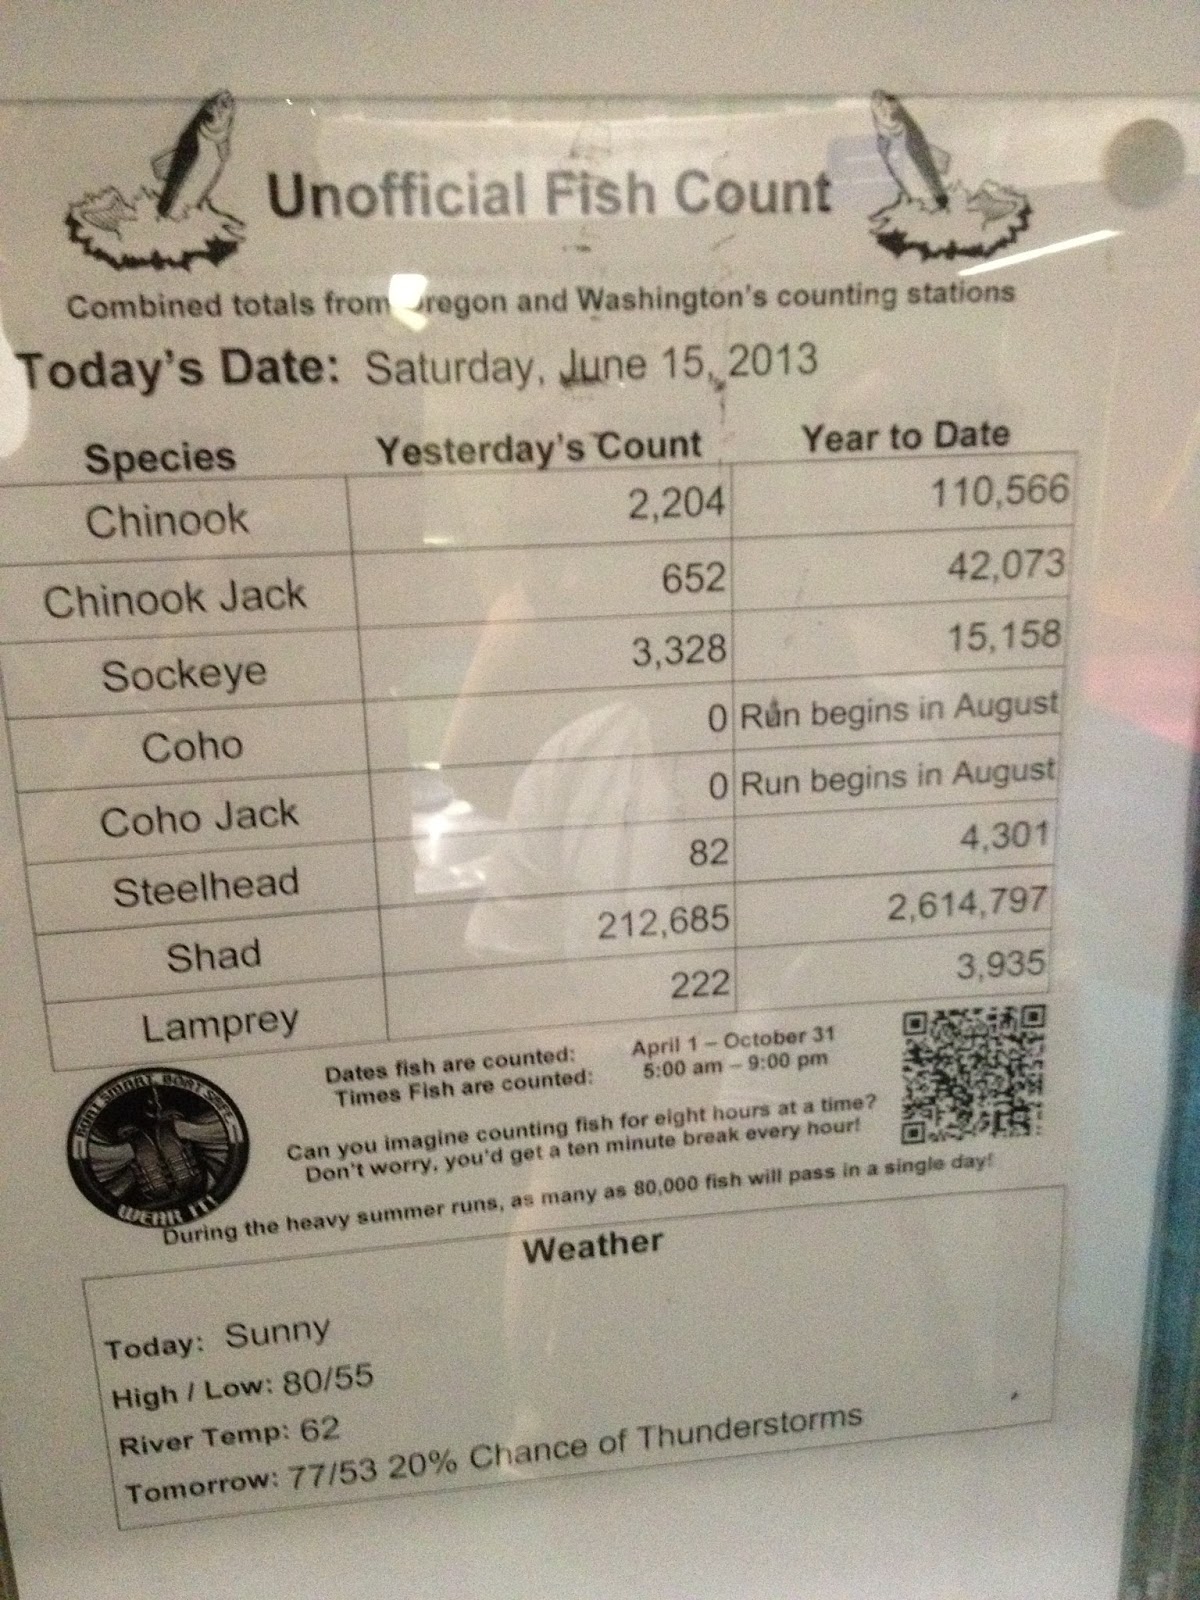 Unofficial Fish Count
Combined totals from Oregon and Washington's counting stations
Today's Date: Saturday, June 15, 2013
Species Yesterday's Count Year to Date
Chinook 2,204 110,566
Chinook Jack 652 42,073
Sockeye 3,328 15,158
Coho 0 Run begins in August
Coho Jack 0 Run begins in August
Steelhead 82 4,301
Shad 212,685 2,614,797
Lamprey 222 3,935
Dates fish are counted: April 1 – October 31
Times Fish are counted: 5:00 am – 9:00 pm
Can you imagine counting fish for eight hours at a time?
Don't worry, you'd get a ten minute break every hour!
During the heavy summer runs, as many as 80,000 fish will pass in a single day!
BOAT SMART BOAT SAFE
WEAR IT!
Weather
Today: Sunny
High / Low: 80/55
River Temp: 62
Tomorrow: 77/53 20% Chance of Thunderstorms